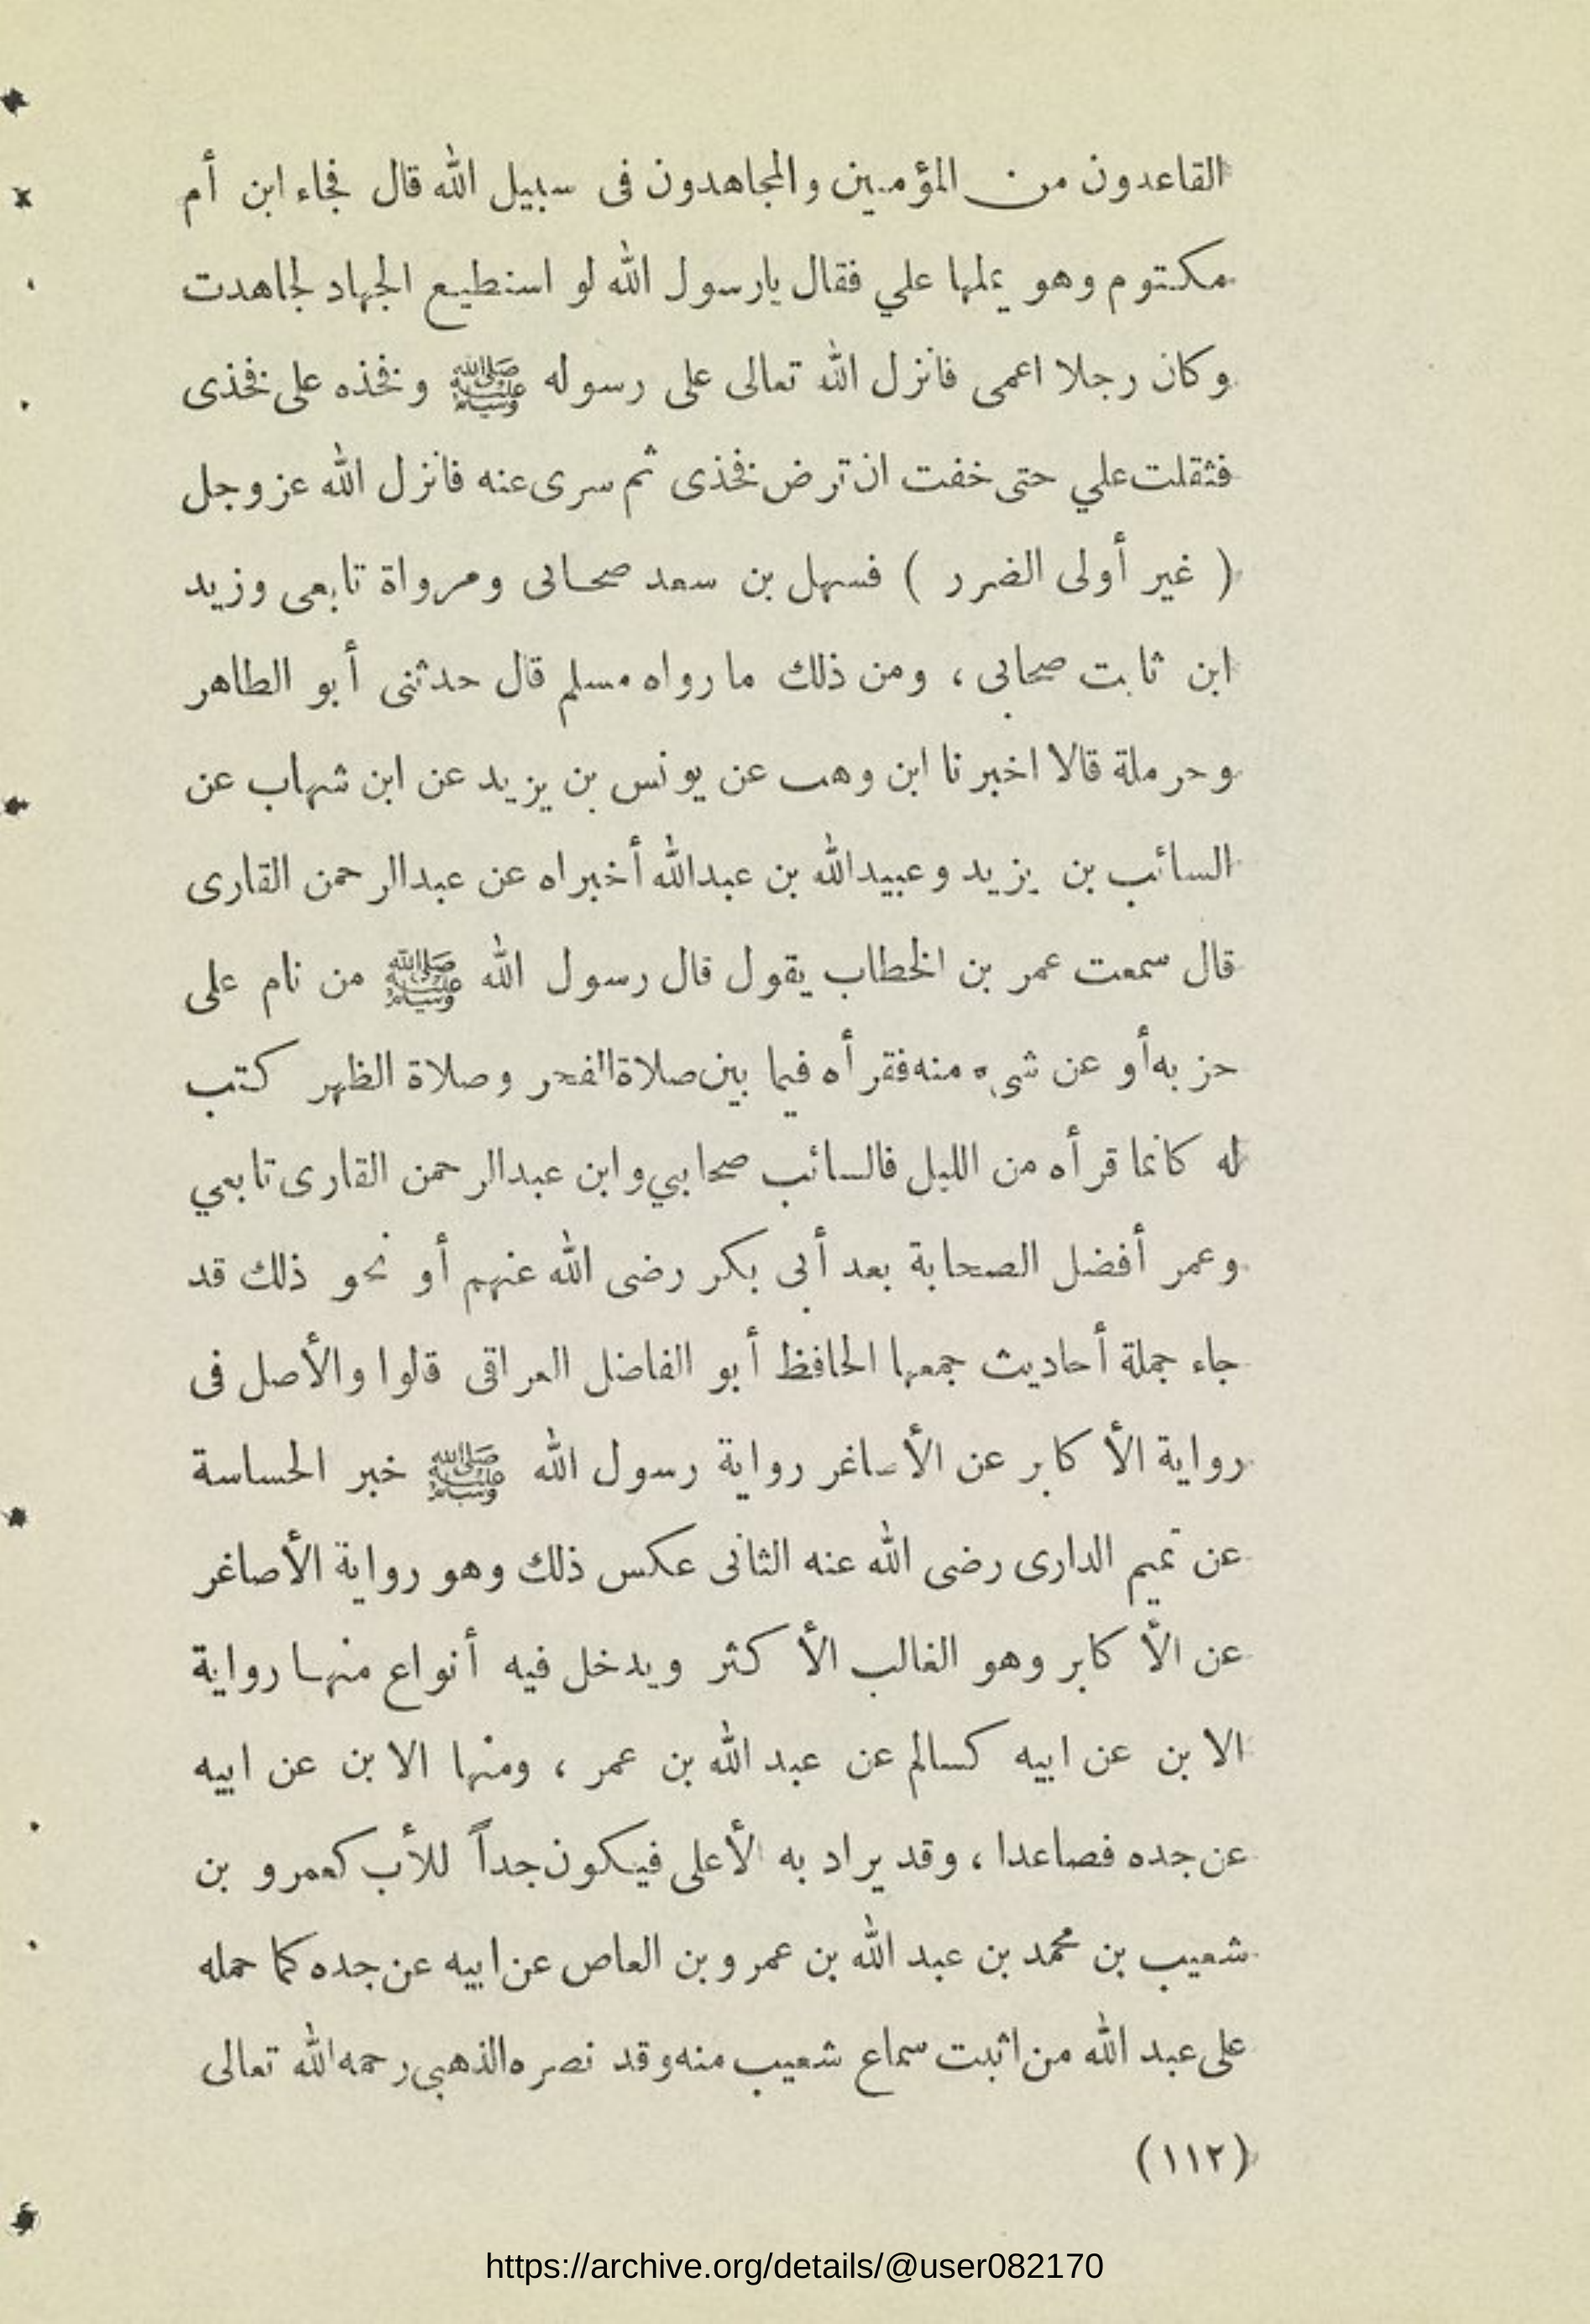 القاعدون من المؤمنين والمجاهدون فى سبيل الله قال فجاء ابن أم
مكتوم وهو يملها علي فقال يارسول الله لو استطيع الجهاد لجاهدت
وكان رجلا اعمى فانزل الله تعالى على رسوله ﷺ وفخذه على فخذى
فثقلت علي حتى خفت ان ترض فخذى ثم سرى عنه فانزل الله عز وجل
( غير أولى الضرر ) فسهل بن سعد صحابى ومرواة تابعى وزيد
ابن ثابت صحابى ، ومن ذلك ما رواه مسلم قال حدثنى أبو الطاهر
وحرملة قالا اخبرنا ابن وهب عن يونس بن يزيد عن ابن شهاب عن
السائب بن يزيد وعبيدالله بن عبدالله أخبراه عن عبدالرحمن القارى
قال سمعت عمر بن الخطاب يقول قال رسول الله ﷺ من نام على
حزبه أو عن شىء منه فقرأه فيما بين صلاة الفجر وصلاة الظهر كتب
له كانما قرأه من الليل فالسائب صحابي وابن عبدالرحمن القارى تابعي
وعمر أفضل الصحابة بعد أبى بكر رضى الله عنهم أو نحو ذلك قد
جاء جملة أحاديث جمعها الحافظ أبو الفاضل العراقى قالوا والأصل فى
رواية الأكابر عن الأصاغر رواية رسول الله ﷺ خبر الحساسة
عن تميم الدارى رضى الله عنه الثانى عكس ذلك وهو رواية الأصاغر
عن الأكابر وهو الغالب الأكثر ويدخل فيه أنواع منها رواية
الابن عن ابيه كسالم عن عبد الله بن عمر ، ومنها الابن عن ابيه
عن جده فصاعدا ، وقد يراد به الأعلى فيكون جداً للأب كعمرو بن
شعيب بن محمد بن عبد الله بن عمرو بن العاص عن ابيه عن جده كما حمله
على عبد الله من اثبت سماع شعيب منه وقد نصره الذهبى رحمه الله تعالى
(١١٢)
https://archive.org/details/@user082170